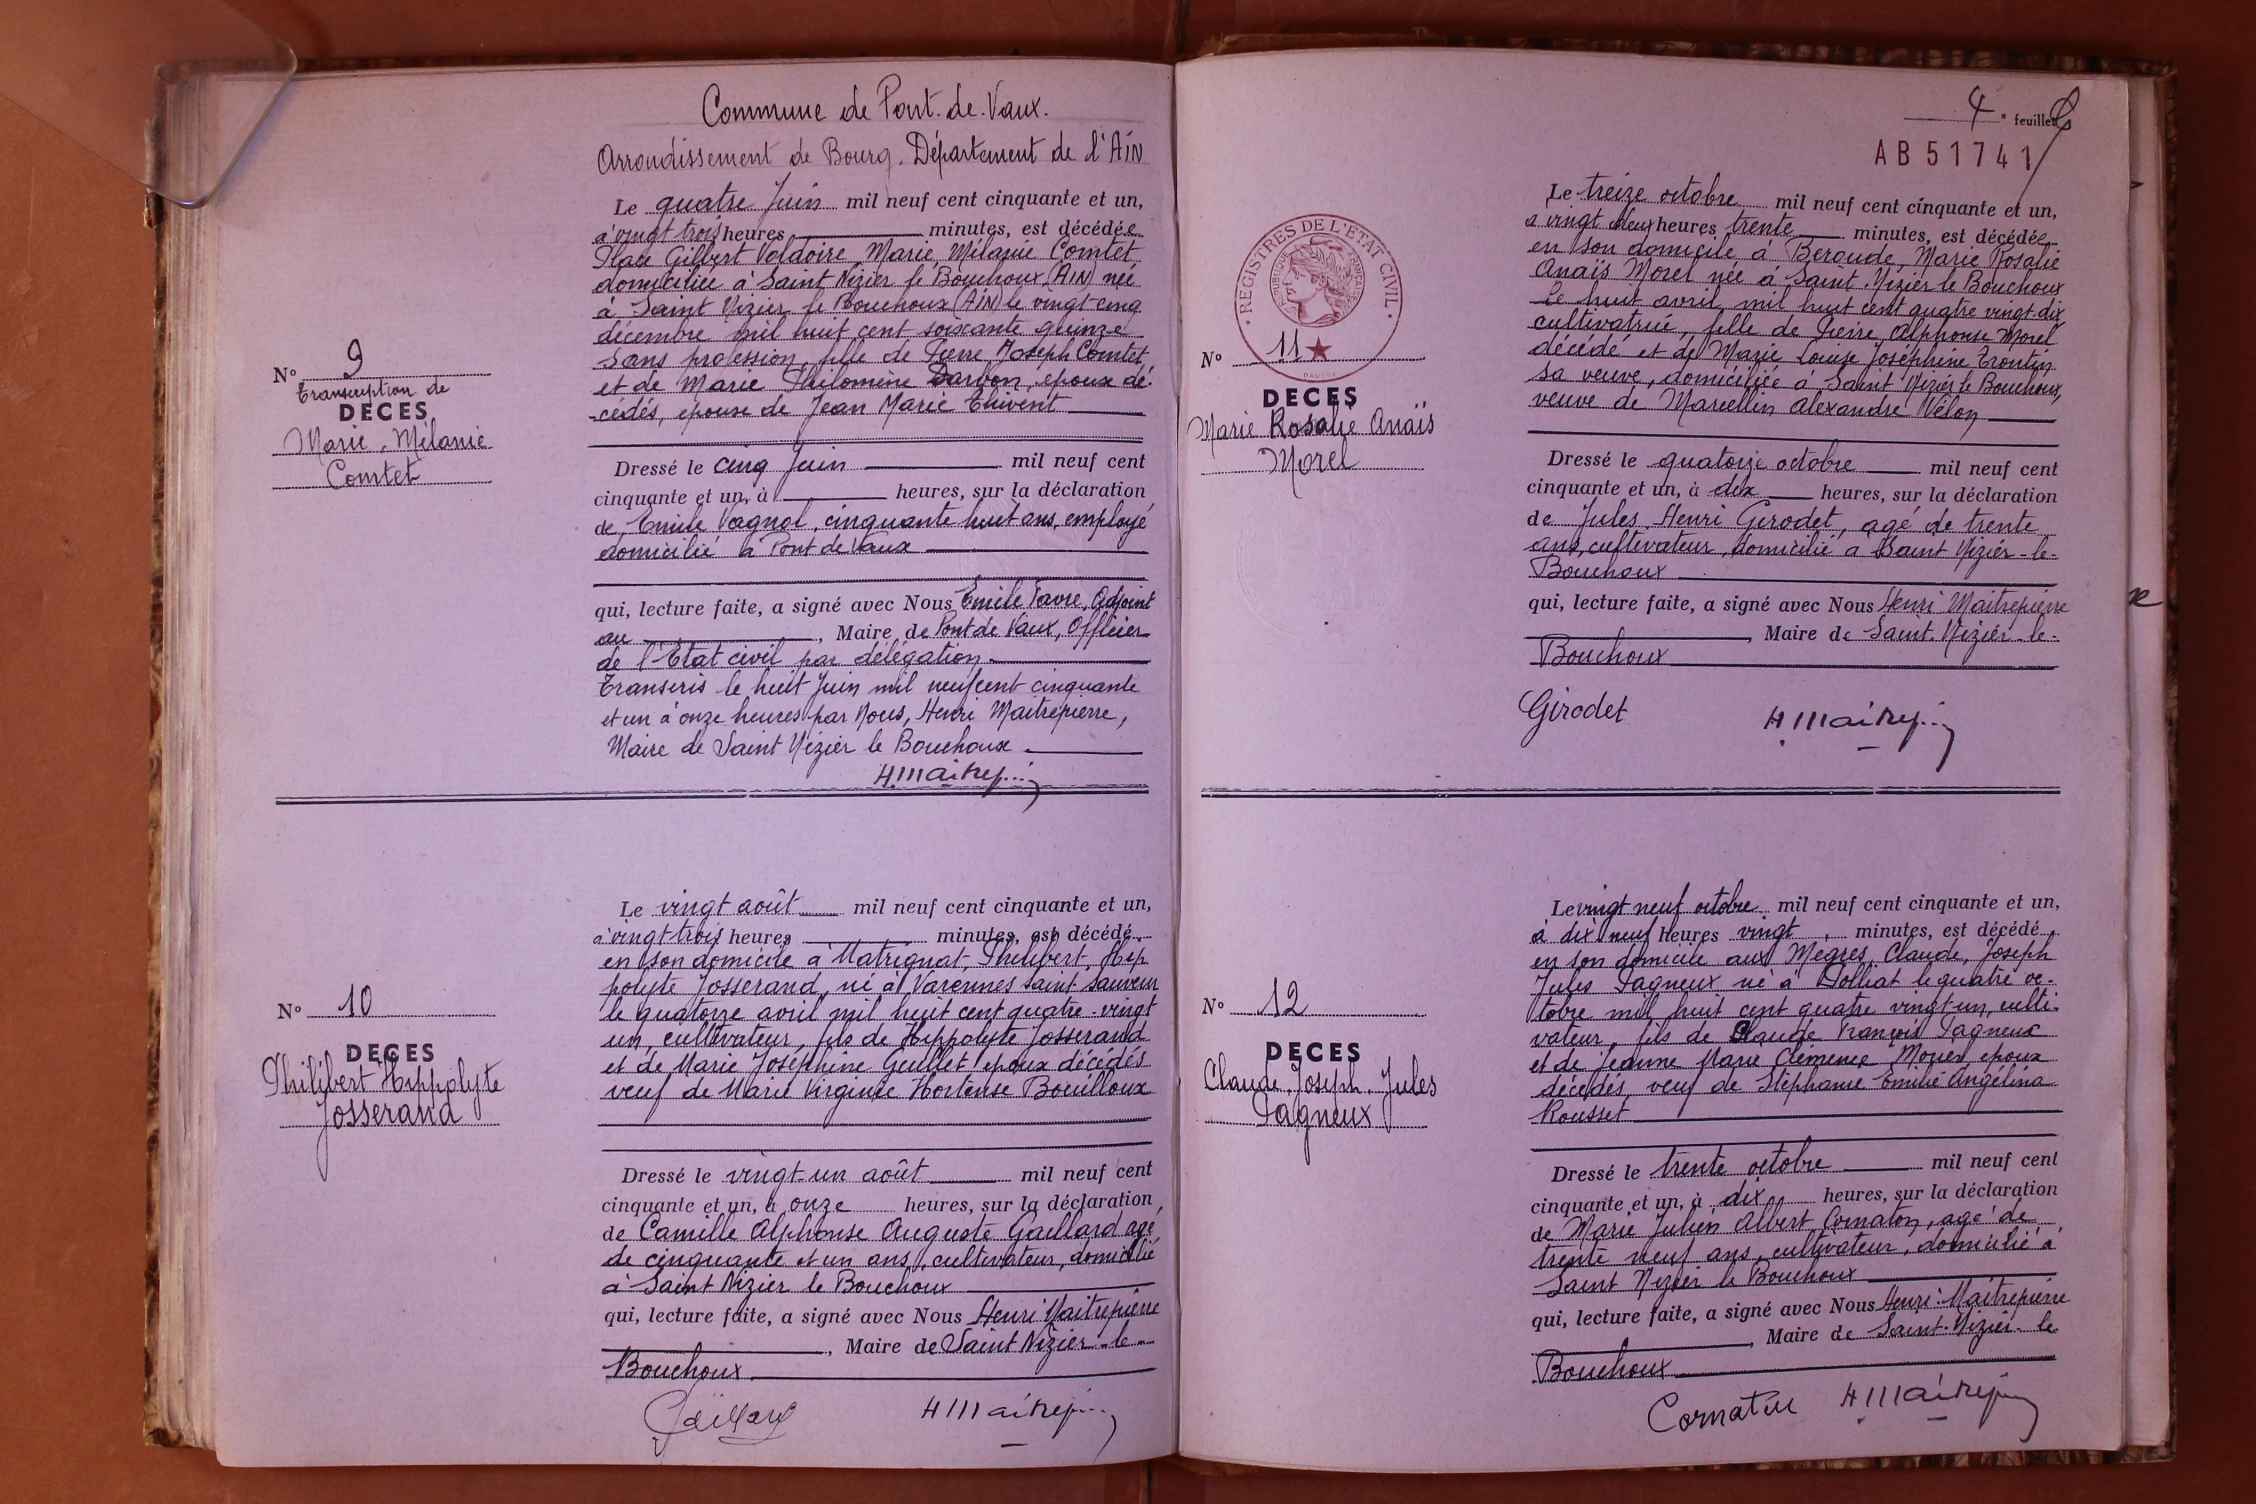 Commune de Pont-de-Vaux.
Arrondissement de Bourg. Département de l'AIN
Le quatre Juin mil neuf cent cinquante et un,
à vingt trois heures minutes, est décédée
Place Gilbert Valdoire, Marie, Mélanie Comtet
domiciliée à Saint Nizier le Bouchoux (AIN) née
à Saint Nizier le Bouchoux (AIN) le vingt cinq
décembre mil huit cent soixante quinze
sans profession, fille de Pierre Joseph Comtet
et de Marie Philomène Darbon, epoux dé-
cédés, epouse de Jean Marie Thivent
N° 9
Transcription de
DECES
Marie, Mélanie
Comtet
Dressé le cinq Juin mil neuf cent
cinquante et un, à heures, sur la déclaration
de Emile Vagnol, cinquante huit ans, employé
domicilié à Pont de Vaux
qui, lecture faite, a signé avec Nous Emile Favre, Adjoint
au , Maire de Pont de Vaux, Officier
de l'Etat civil par délégation
Transcris le huit Juin mil neuf cent cinquante
et un à onze heures par Nous, Henri Maitrepierre,
Maire de Saint Nizier le Bouchoux
N° 10
DECES
Philibert Hippolyte
Josserand
Le vingt août mil neuf cent cinquante et un,
à vingt trois heures minutes, est décédé
en son domicile à Matrignat, Philibert, Hip
polyte Josserand, né à Varennes Saint Sauveur
le quatorze avril mil huit cent quatre-vingt
un, cultivateur, fils de Hippolyte Josserand
et de Marie Joséphine Guillet epoux décédés
veuf de Marie Virginie Hortense Bouilloux
Dressé le vingt-un août mil neuf cent
cinquante et un, à onze heures, sur la déclaration
de Camille Alphonse Auguste Gaillard agé
de cinquante et un ans, cultivateur, domicilié
à Saint Nizier le Bouchoux
qui, lecture faite, a signé avec Nous Henri Maitrepierre
, Maire de Saint Nizier-le-
Bouchoux
Gaillard
4e feuillet
AB51741
REGISTRES DE L'ETAT CIVIL
N° 11
DECES
Marie Rosalie Anaïs
Morel
Le treize octobre mil neuf cent cinquante et un,
à vingt deux heures trente minutes, est décédée
en son domicile à Beroude, Marie Rosalie
Anaïs Morel née à Saint Nizier le Bouchoux
le huit avril mil huit cent quatre vingt dix
cultivatrice, fille de Pierre Alphonse Morel
décédé et de Marie Louise Joséphine Trontin
sa veuve, domiciliée à Saint Nizier le Bouchoux,
veuve de Marcellin Alexandre Vélon
Dressé le quatorze octobre mil neuf cent
cinquante et un, à dix heures, sur la déclaration
de Jules Henri Girodet, agé de trente
ans, cultivateur, domicilié à Saint Nizier-le-
Bouchoux
qui, lecture faite, a signé avec Nous Henri Maitrepierre
, Maire de Saint Nizier-le-
Bouchoux
Girodet
N° 12
DECES
Claude, Joseph, Jules
Pagneux
Le vingt neuf octobre mil neuf cent cinquante et un,
à dix neuf heures vingt minutes, est décédé
en son domicile aux Mègres, Claude, Joseph
Jules Pagneux né à Dolliat le quatre oc-
tobre mil huit cent quatre vingt-un, culti-
vateur, fils de Claude François Pagneux
et de Jeanne Marie Clémence Mouer epoux
décédés, veuf de Stéphanie Emilie Angélina
Rousset
Dressé le trente octobre mil neuf cent
cinquante et un, à dix heures, sur la déclaration
de Marie Julien Albert Cornaton, agé de
trente neuf ans, cultivateur, domicilié à
Saint Nizier le Bouchoux
qui, lecture faite, a signé avec Nous Henri Maitrepierre
, Maire de Saint-Nizier-le
Bouchoux